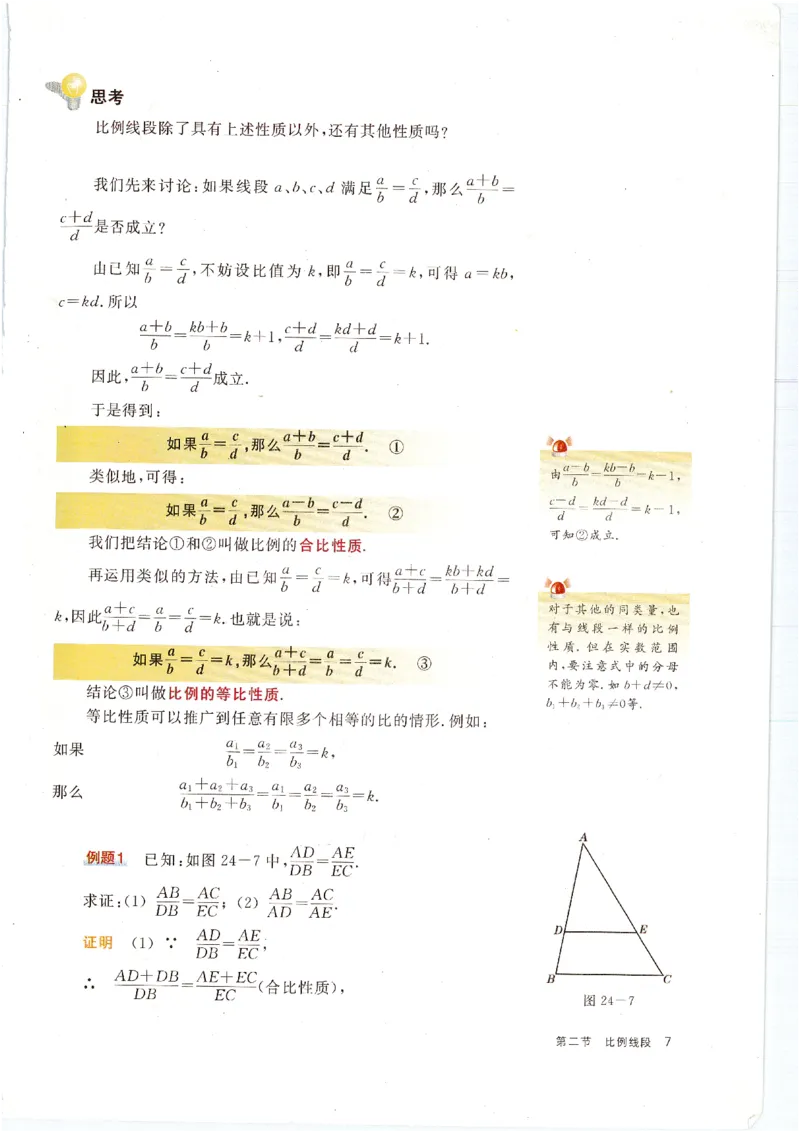 思考
比例线段除了具有上述性质以外,还有其他性质吗?
我们先来讨论:如果线段 a、b、c、d 满足 a/b = c/d,那么 (a+b)/b =
(c+d)/d 是否成立?
由已知 a/b = c/d,不妨设比值为 k,即 a/b = c/d = k,可得 a=kb,
c=kd.所以
(a+b)/b = (kb+b)/b = k+1, (c+d)/d = (kd+d)/d = k+1.
因此, (a+b)/b = (c+d)/d 成立.
于是得到:
如果 a/b = c/d,那么 (a+b)/b = (c+d)/d. ①
类似地,可得:
如果 a/b = c/d,那么 (a-b)/b = (c-d)/d. ②
我们把结论①和②叫做比例的合比性质.
再运用类似的方法,由已知 a/b = c/d = k,可得 (a+c)/(b+d) = (kb+kd)/(b+d) =
k,因此 (a+c)/(b+d) = a/b = c/d = k.也就是说:
如果 a/b = c/d = k,那么 (a+c)/(b+d) = a/b = c/d = k. ③
结论③叫做比例的等比性质.
等比性质可以推广到任意有限多个相等的比的情形.例如:
如果 a₁/b₁ = a₂/b₂ = a₃/b₃ = k,
那么 (a₁+a₂+a₃)/(b₁+b₂+b₃) = a₁/b₁ = a₂/b₂ = a₃/b₃ = k.
由 (a-b)/b = (kb-b)/b = k-1,
(c-d)/d = (kd-d)/d = k-1,
可知②成立.
对于其他的同类量,也
有与线段一样的比例
性质.但在实数范围
内,要注意式中的分母
不能为零.如 b+d≠0,
b₁+b₂+b₃≠0等.
例题1 已知:如图 24-7 中, AD/DB = AE/EC.
求证:(1) AB/DB = AC/EC; (2) AB/AD = AC/AE.
证明 (1) ∵ AD/DB = AE/EC,
∴ (AD+DB)/DB = (AE+EC)/EC (合比性质),
A
D E
B C
图 24-7
第二节 比例线段 7